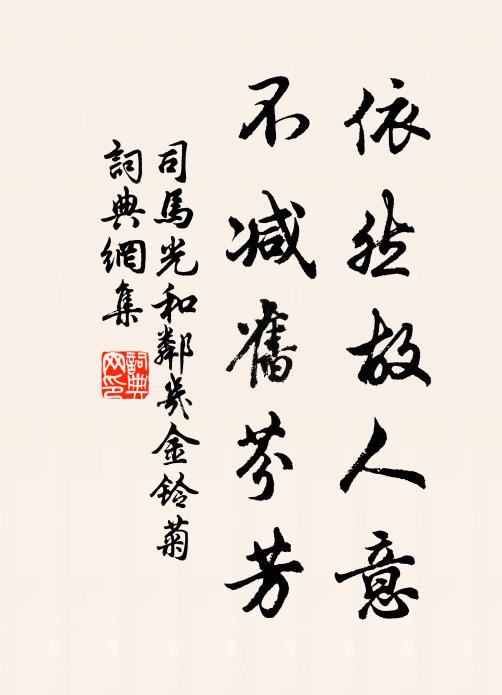 依然故人意
不减舊芬芳
司馬光和鄰幾金鈴菊
詞典網集
詞典網印